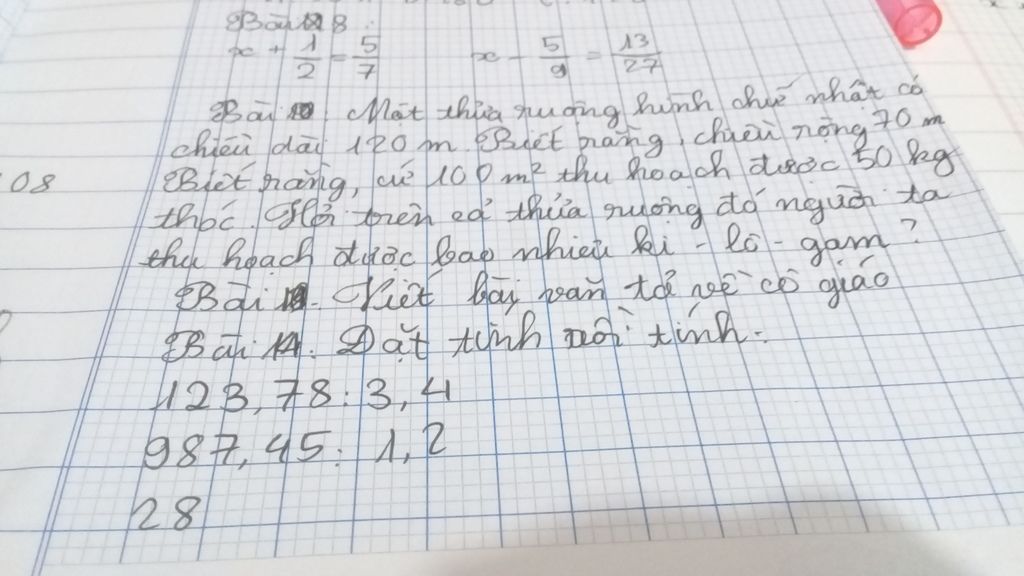 Bài 8:
x + 1/2 = 5/7    x - 5/9 = 13/27
Bài . Một thửa ruộng hình chữ nhật có
chiều dài 120 m Biết rằng, chiều rộng 70 m
Biết rằng, cứ 100 m² thu hoạch được 50 kg
08
thóc. Hỏi trên cả thửa ruộng đó người ta
thu hoạch được bao nhiêu ki - lô - gam?
Bài . Viết bài văn tả về cô giáo
Bài 14. Đặt tính rồi tính:
123,78 : 3,4
987,45 : 1,2
28